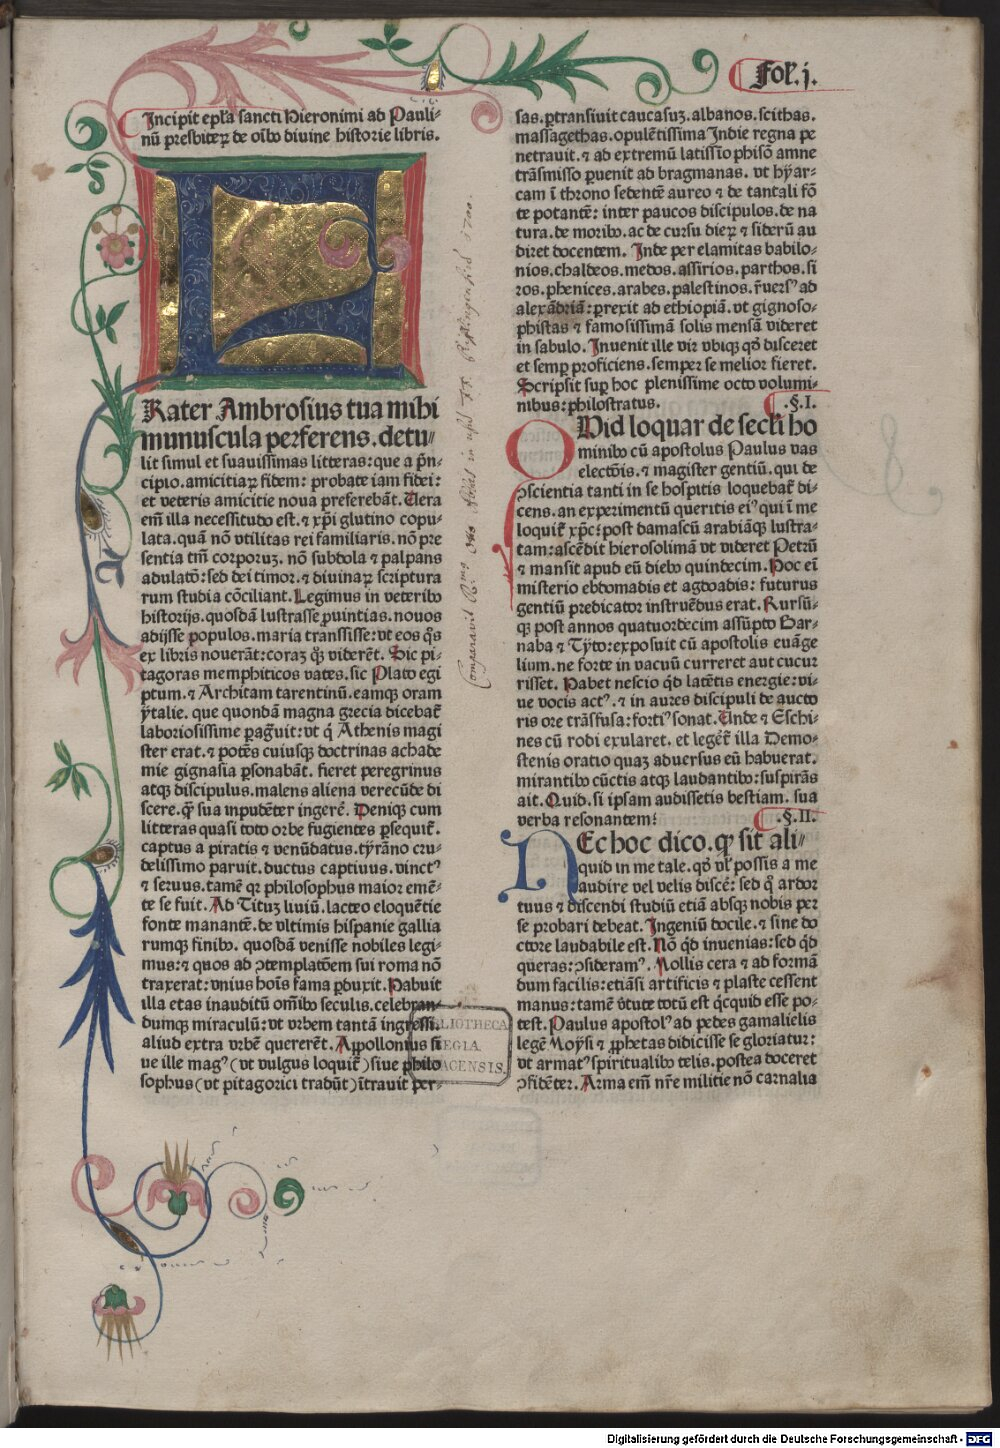 Fol. j.
Incipit epl'a sancti Hieronimi ad Pauli-
nū presbiterꝫ de oībꝰ diuine historie libris.
F
Rater Ambrosius tua mihi
munuscula perferens. detu⸗
lit simul et suauissimas litteras: que a p̄n-
cipio. amicitiaꝝ fidem: probate iam fidei:
et veteris amicitie noua preferebāt. Uera
em̄ illa necessitudo est. ⁊ xp̄i glutino copu-
lata. quā nō vtilitas rei familiaris. nō pre
sentia tm̄ corporuꝫ. nō subdola ⁊ palpans
adulatō: sed dei timor. ⁊ diuinaꝝ scriptura
rum studia cōciliant. Legimus in veteribꝰ
historijs. quosdā lustrasse ꝓuintias. nouos
adijsse populos. maria transisse: vt eos q̄s
ex libris nouerāt: coraꝫ qꝫ viderēt. Sic pi-
tagoras memphiticos vates. sic Plato egi
ptum. ⁊ Architam tarentinū. eamqꝫ oram
ytalie. que quondā magna grecia dicebat̄
laboriosissime ꝑag̃uit: vt q̇ Athenis magi
ster erat. ⁊ potēs cuiusqꝫ doctrinas achade
mie gignasia ꝑsonabāt. fieret peregrinus
atqꝫ discipulus. malens aliena verecūde di
scere. qꝫ sua inpudēter ingerē. Deniqꝫ cum
litteras quasi toto orbe fugientes ꝑsequit̄.
captus a piratis ⁊ venūdatus. tyrāno cru-
delissimo paruit. ductus captiuus. vinctꝰ
⁊ seruus. tamē qꝛ philosophus maior emē-
te se fuit. Ad Tituꝫ liuiū. lacteo eloquētie
fonte manantē. de vltimis hispanie gallia
rumqꝫ finibꝰ. quosdā venisse nobiles legi-
mus: ⁊ quos ad ꝯtemplatōem sui roma nō
traxerat: vnius hoīs fama ꝑduxit. Habuit
illa etas inauditū om̄ibꝰ seculis. celebran-
dumqꝫ miraculū: vt vrbem tantā ingressi.
aliud extra vrbē quererēt. Appollonius si
ue ille magꝰ (vt vulgus loquit̄) siue philo
sophus (vt pitagorici tradūt) ītrauit per-
Comparauit
1700.
BIBLIOTHECA
REGIA
MONACENSIS.
sas. ꝑtransiuit caucasuꝫ. albanos. scithas.
massagethas. opulētissima Indie regna pe
netrauit. ⁊ ad extremū latissīo phisō amne
trāsmisso ꝑuenit ad bragmanas. vt hyar-
cam ī throno sedentē aureo ⁊ de tantali fō
te potantē: inter paucos discipulos. de na
tura. de moribꝰ. ac de cursu dieꝝ ⁊ siderū au
diret docentem. Inde per elamitas babilo-
nios. chaldeos. medos. assirios. parthos. si
ros. phenices. arabes. palestinos. r̄uersꝰ ad
alexādriā: ꝑrexit ad ethiopiā. vt gignoso-
phistas ⁊ famosissimā solis mensā videret
in sabulo. Inuenit ille vir vbiqꝫ qđ disceret
et semꝑ proficiens. semper se melior fieret.
Scripsit suꝑ hoc plenissime octo volumi-
nibus: philostratus.
.§.I.
QVid loquar de secl'i ho
minibꝰ cū apostolus Paulus vas
electōis. ⁊ magister gentiū. qui de
ꝯscientia tanti in se hospitis loquebat̄ di-
cens. an experimentū queritis eiꝰ qui ī me
loquit̄ xp̄c: post damascū arabiāqꝫ lustra-
tam: ascēdit hierosolimā vt videret Petrū
⁊ mansit apud eū diebꝰ quindecim. Hoc eī
misterio ebdomadis et agdoadis: futurus
gentiū predicator instruēdus erat. Rursū-
qꝫ post annos quatuordecim assūpto Bar-
naba ⁊ Tyto: exposuit cū apostolis euāge
lium. ne forte in vacuū curreret aut cucur
risset. Habet nescio qđ latētis energie: vi-
ue vocis actꝰ. ⁊ in aures discipuli de aucto
ris ore trāsfusa: fortiꝰ sonat. Unde ⁊ Eschi-
nes cū rodi exularet. et legēt̄ illa Demo-
stenis oratio quaꝫ aduersus eū habuerat.
mirantibꝰ cūctis atqꝫ laudantibꝰ: suspirās
ait. Quid. si ipsam audissetis bestiam. sua
verba resonantem:
.§.II.
NEc hoc dico. qꝫ sit ali⸗
quid in me tale. qđ vl' possis a me
audire vel velis discē: sed q̄ ardor
tuus ⁊ discendi studiū etiā absqꝫ nobis per
se probari debeat. Ingeniū docile. ⁊ sine do
ctore laudabile est. Nō qđ inuenias: sed qđ
queras: ꝯsideramꝰ. Mollis cera ⁊ ad formā
dum facilis: etiāsi artificis ⁊ plaste cessent
manus: tamē v̄tute totū est q̇cquid esse po-
test. Paulus apostolꝰ ad pedes gamalielis
legē Moysi ⁊ ꝓphetas didicisse se gloriatur:
vt armatꝰ spiritualibꝰ telis. postea doceret
ꝯfidēter. Arma em̄ nr̄e militie nō carnalia
Digitalisierung gefördert durch die Deutsche Forschungsgemeinschaft - DFG